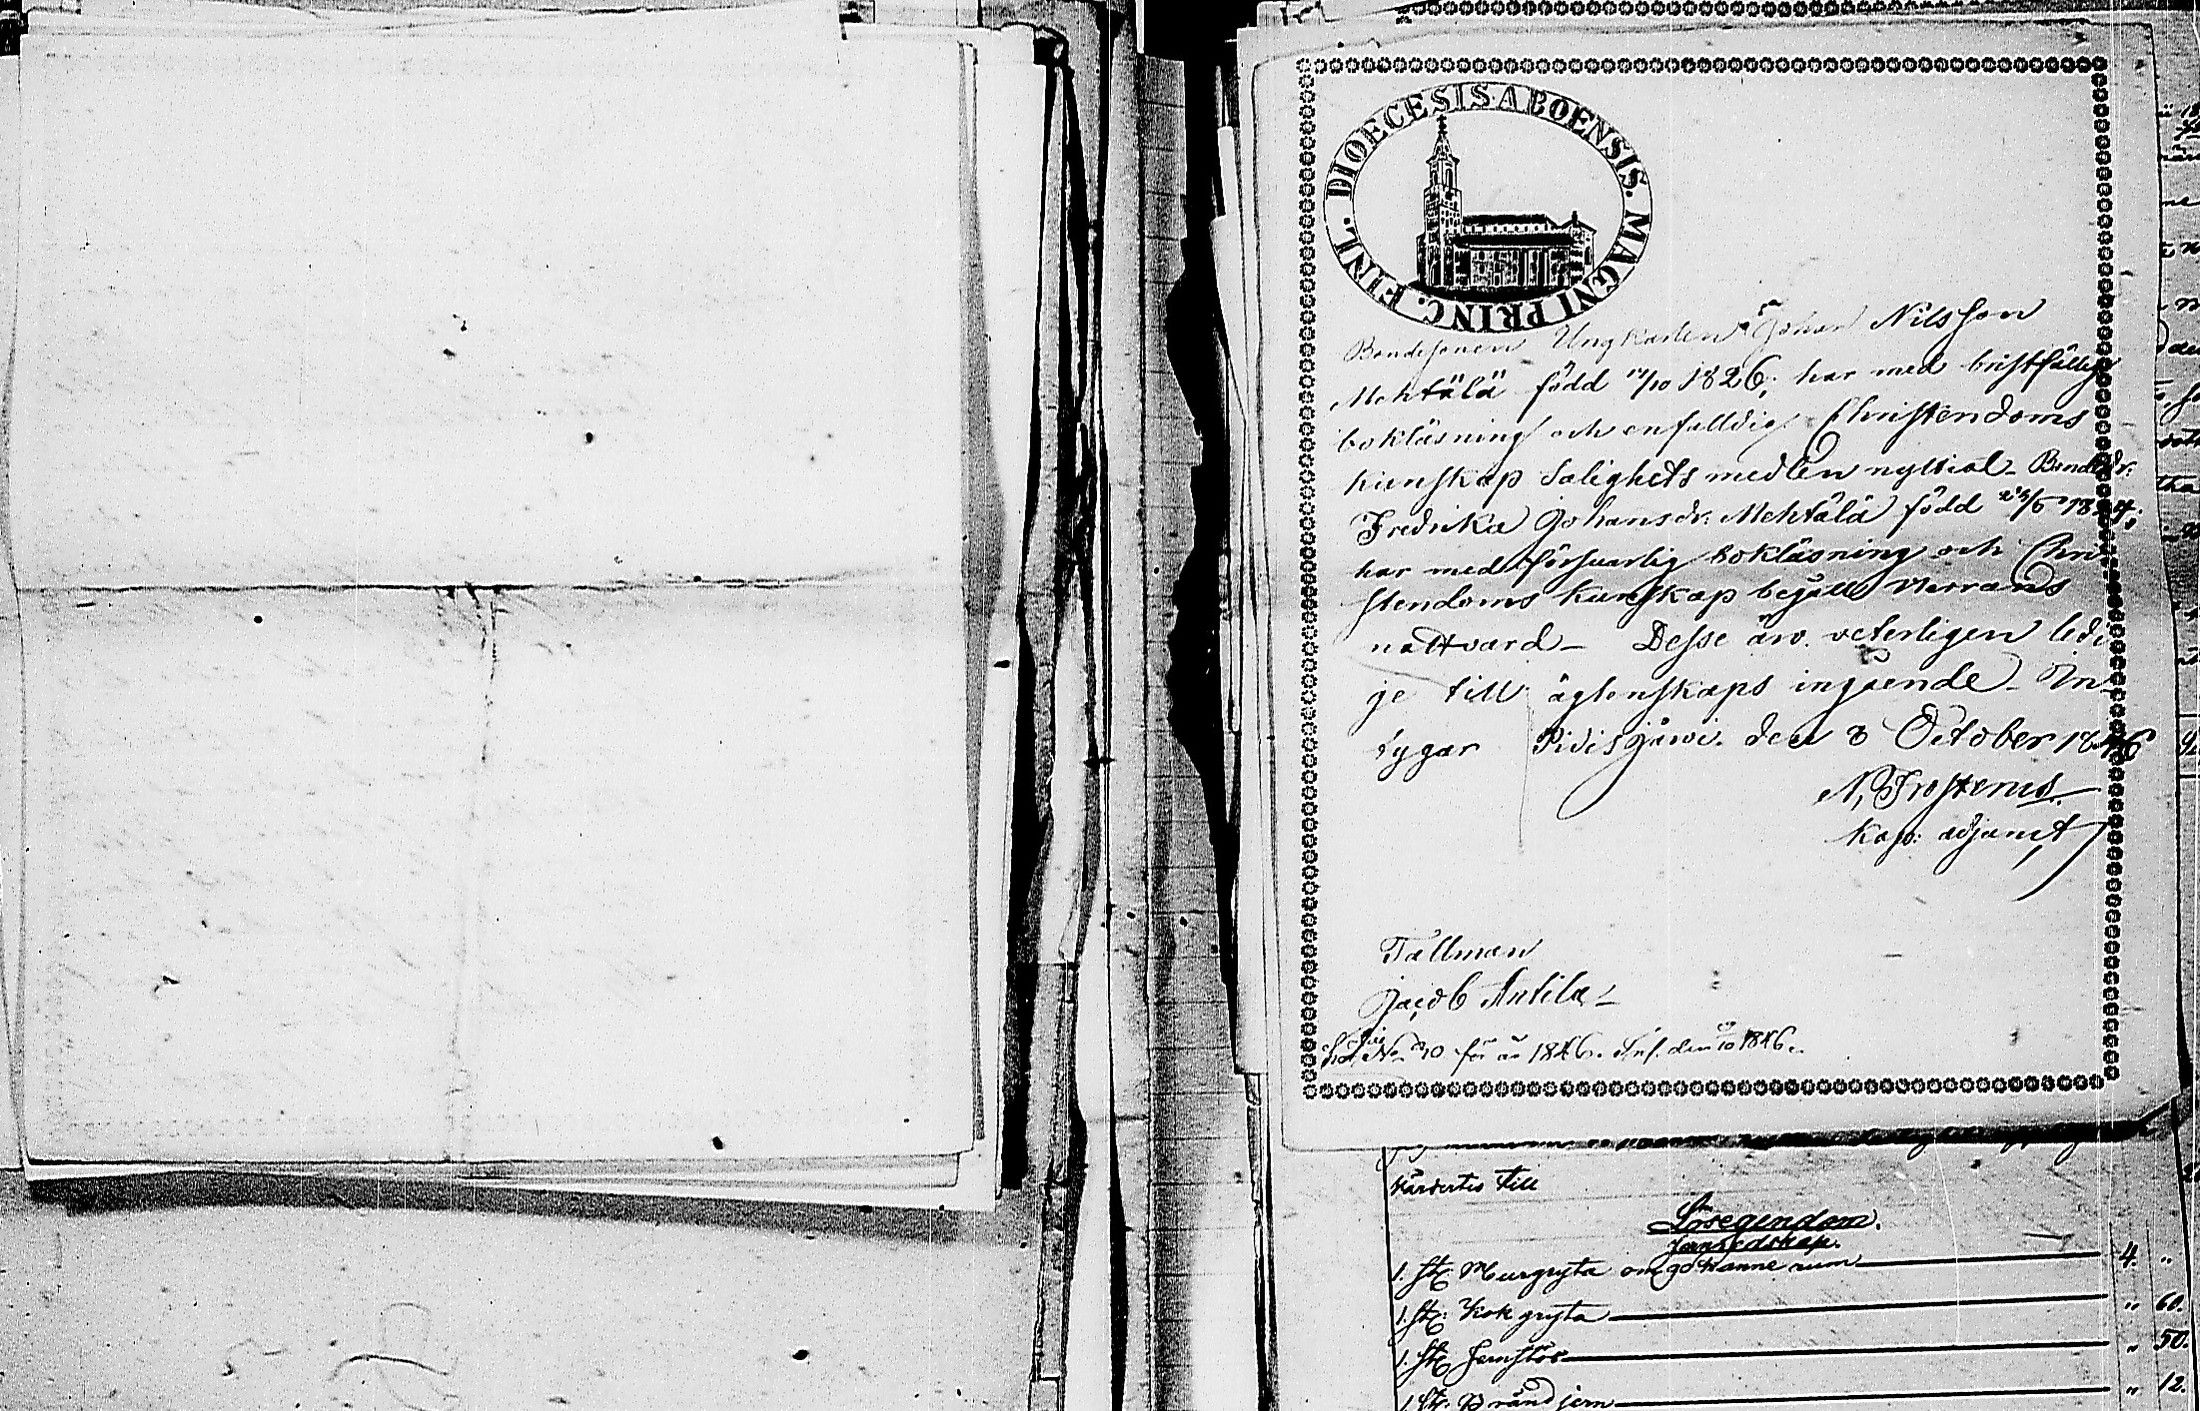 DIOECESIS ABOENSIS. MAGNI PRINC. FINL.
Bondesonen Ungkarlen Johan Nilsson
Mehtälä född 11/10 1826; har med bristfällig
bokläsning och enfalldig Christendoms
kunskap Salighets medlen nyttjat - Bondedr.
Fredrika Johansdr. Mehtälä född /5 1824;
har med försvarlig bokläsning och Chri
stendoms kunskap begått Herrans
nattvard - Desse äro veterligen ledi
ge till ägtenskaps ingående - In
tygar Pidisjärvi den 8 October 1846
N. Frosterus.
Kap. adjunct
Tallman
Jacob Antila -
No 30 för år 1846. Inf. den 1846.
värdertes till
Lösegendom.
Jernredskap.
1. St. Murgryta om 90 kanne rum 4. "
1. St. Kok gryta " 60.
1. St. Jernstör " 50.
1. St. Brändjern " 12.